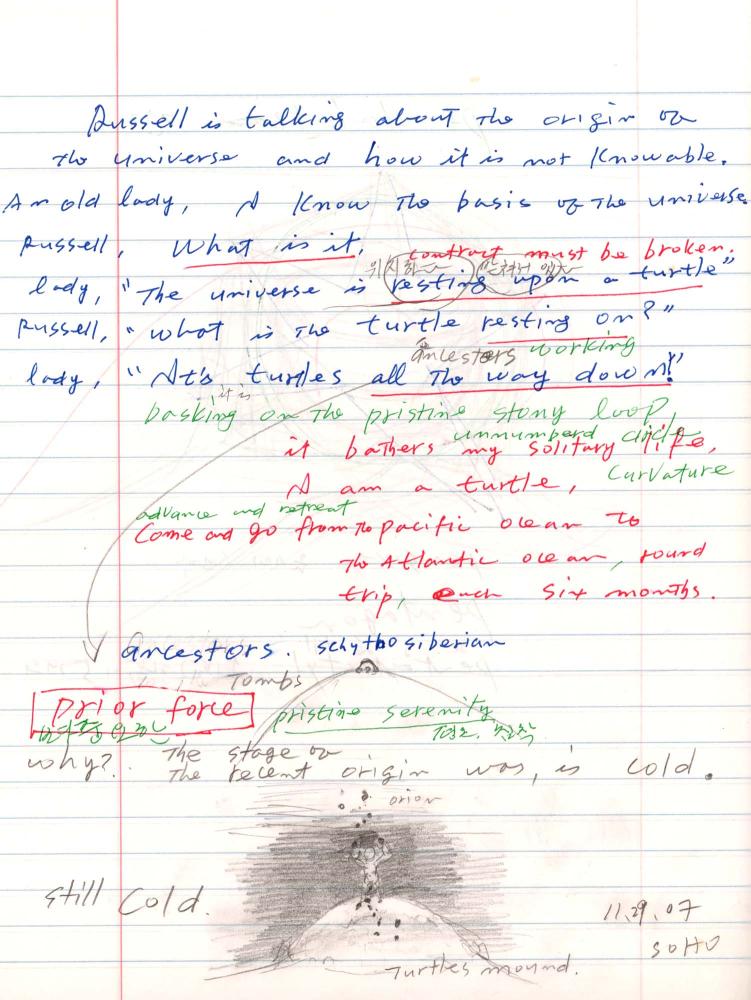 Russell is talking about the origin of
the universe and how it is not knowable.
An old lady, I know the basis of the universe
Russell, What is it, contract must be broken.
위치하는
lady, "The universe is resting upon a turtle"
Russell, "what is the turtle resting on?"
ancestors working
lady, "It's turtles all the way down!"
it is
basking on the pristine stony loop,
unnumbered circle
it bathers my solitary life,
I am a turtle, curvature
advance and retreat
Come and go from the pacific ocean to
the Atlantic ocean, round
trip, each six months.
ancestors. schythosiberian
Tombs
prior force pristine serenity
why? The stage of
The recent origin was, is cold.
orion
still cold.
11.29.07
SOHO
Turtles mound.